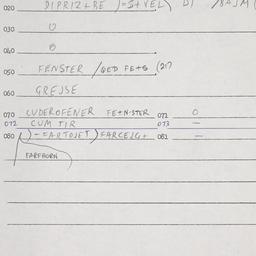 020 DIPRIZ+BE )-S+VEL DI /8AJM
030 0
040 0
050 FENSTER /GED FE+S (2?)
060 GREJSE
070 LUDEROFENER FE+N-STER 071 0
072 CUM TIR 073 —
080 ( )-FARTOJET) FARCEJG+ 081 —
FARFHORN